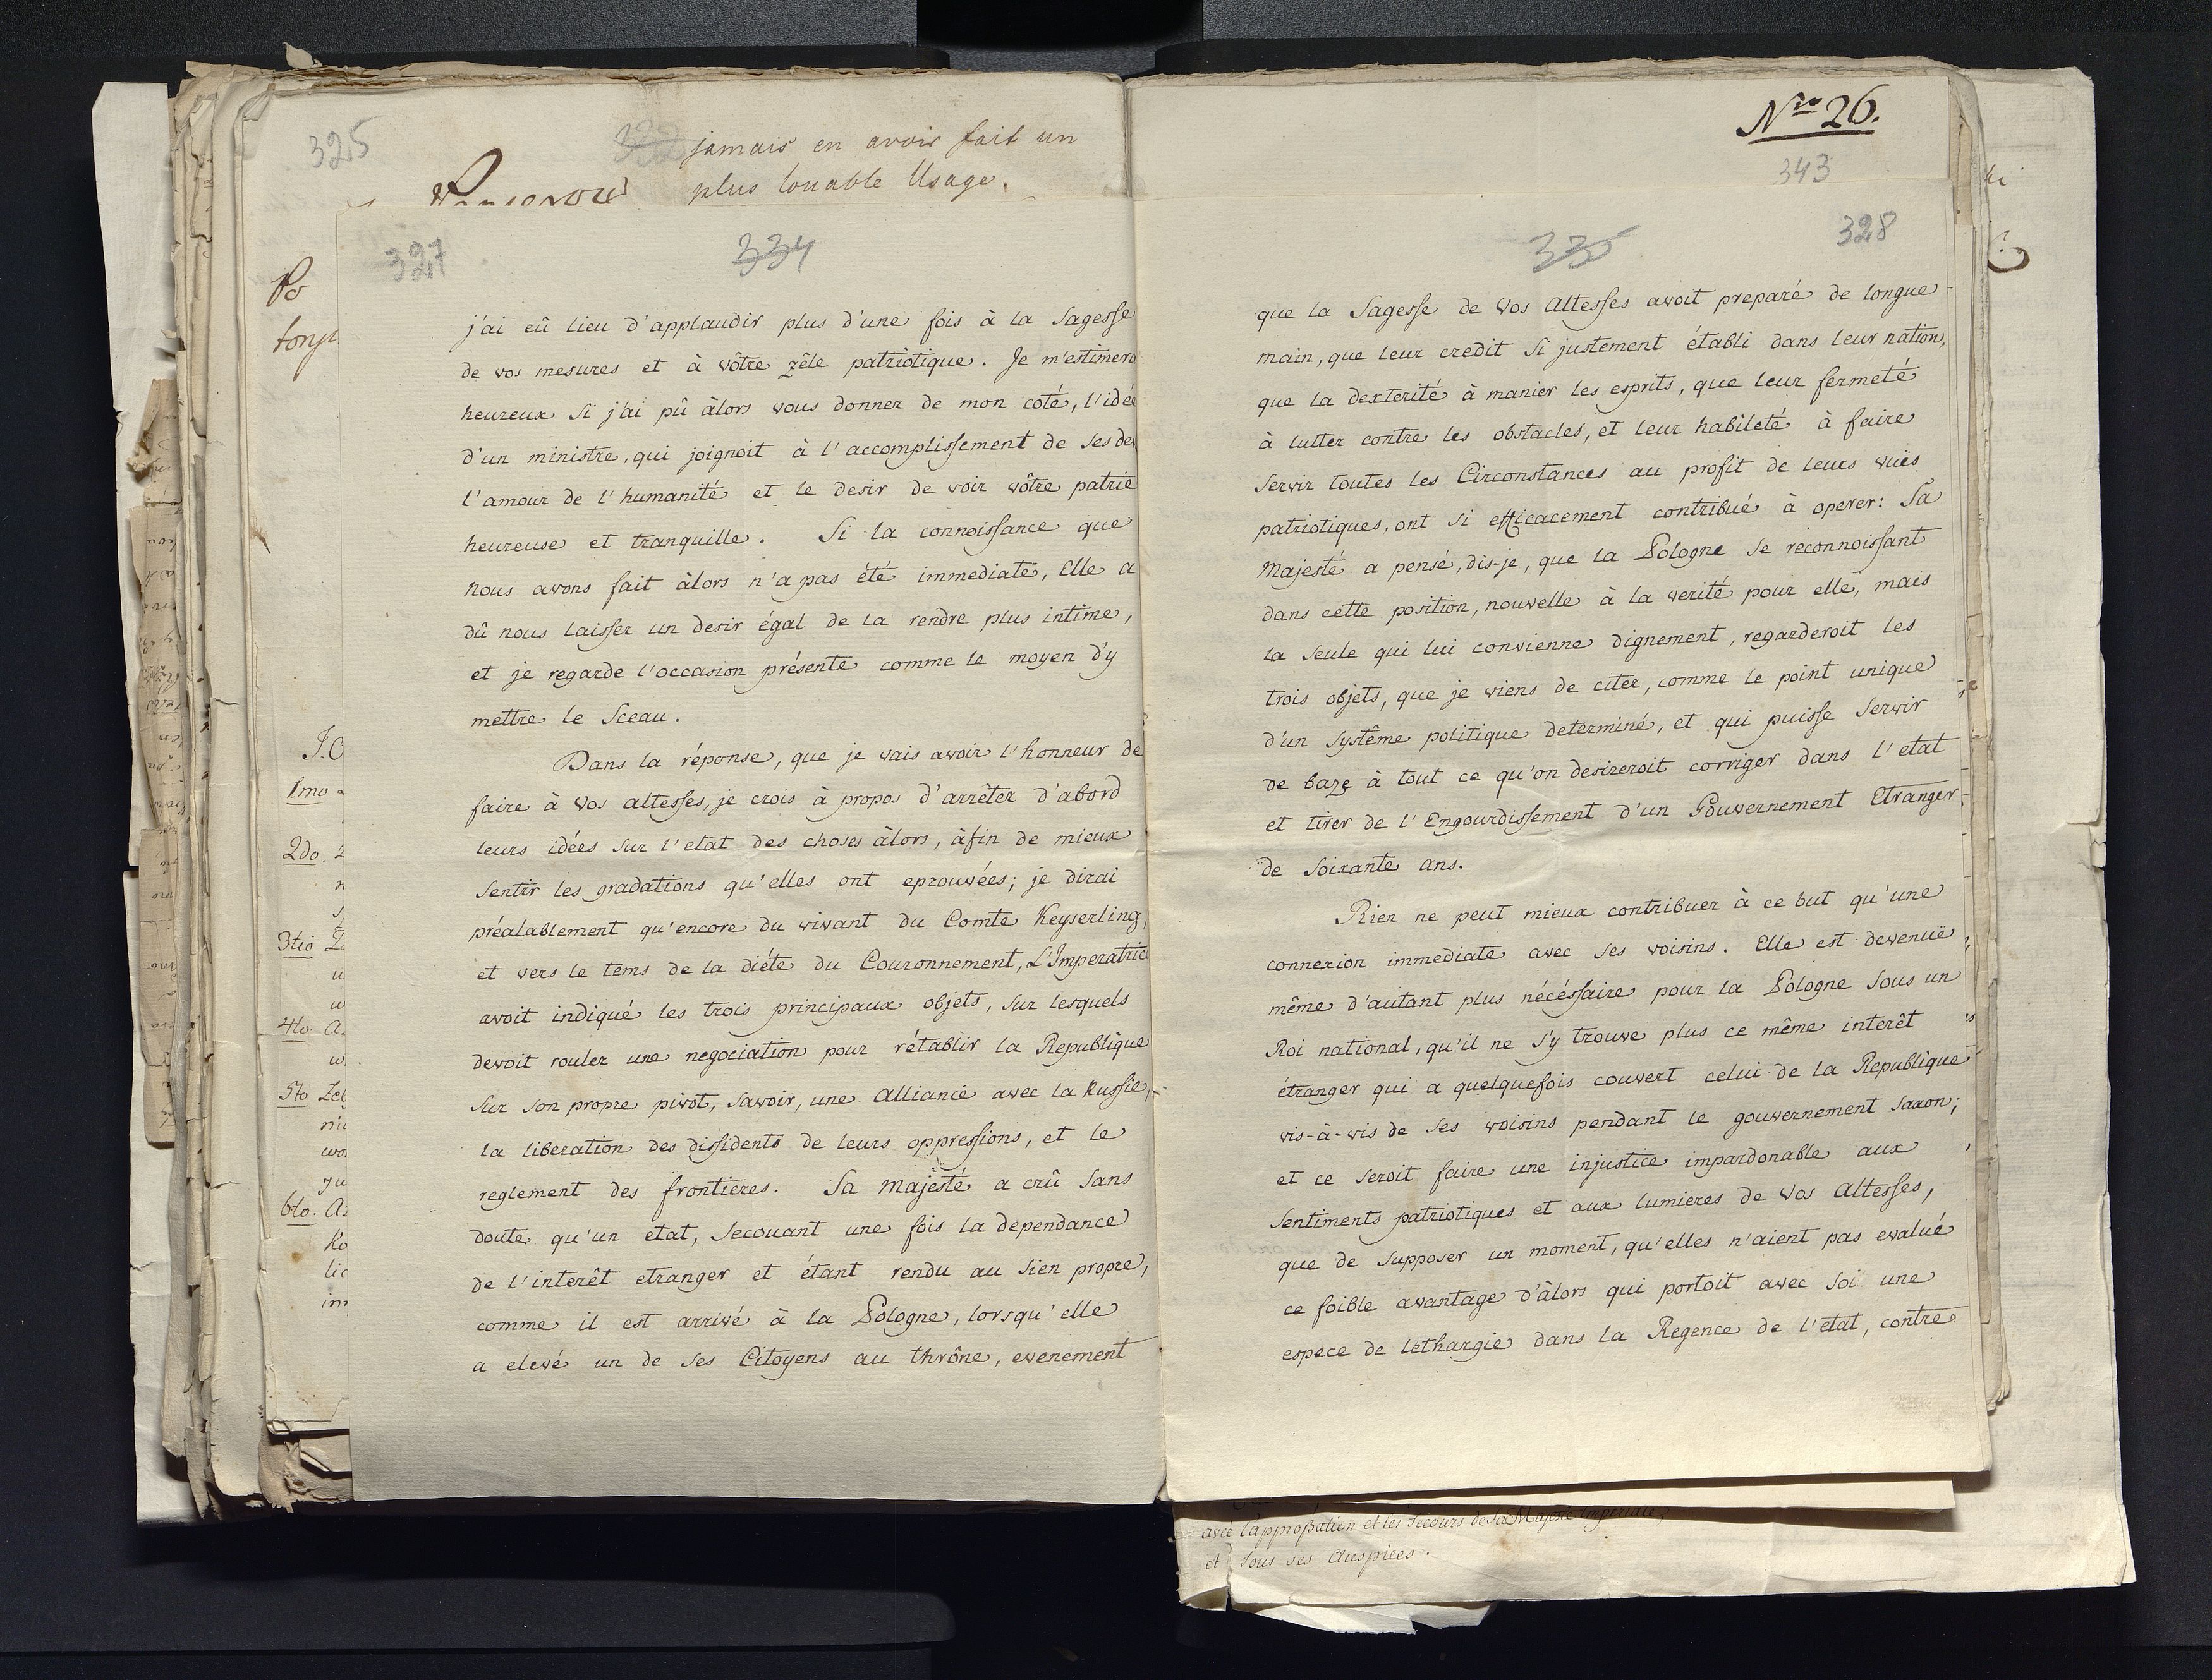 325
jamais en avoir fait un
plus louable Usage.
327
334
j'ai eû lieu d'applaudir plus d'une fois à la Sagesse
de vos mesures et à vôtre zêle patriotique. Je m'estimera
heureux si j'ai pû àlors vous donner de mon coté, l'idée
d'un ministre, qui joignoit à l'accomplissement de ses de
l'amour de l'humanité et le desir de voir vôtre patrie
heureuse et tranquille. Si la connoissance que
nous avons fait àlors n'a pas été immediate, Elle a
dû nous laisser un desir égal de la rendre plus intime,
et je regarde l'occasion présente comme le moyen d'y
mettre le Sceau.
Dans la réponse, que je vais avoir l'honneur de
faire à Vos altesses, je crois à propos d'arrêter d'abord
leurs idées sur l'etat des choses àlors, àfin de mieux
sentir les gradations qu'elles ont eprouvées; je dirai
préalablement qu'encore du vivant du Comte Keyserling,
et vers le tems de la diéte du Couronnement, L'Imperatrice
avoit indiqué les trois principaux objets, sur lesquels
devoit rouler une negociation pour rétablir la Republique
sur son propre pivot, savoir, une alliance avec la Russie,
la liberation des dissidents de leurs oppressions, et le
reglement des frontieres. Sa Majesté a crû sans
doute qu'un etat, secouant une fois la dependance
de l'interêt etranger et étant rendu au sien propre,
comme il est arrivé à la Pologne, lorsqu'elle
a elevé un de ses Citoyens au thrône, evenement
Nro 26.
343
335
328
que la Sagesse de Vos altesses avoit preparé de longue
main, que leur credit si justement établi dans leur nation,
que la dexterité à manier les esprits, que leur fermeté
à lutter contre les obstacles, et leur habileté à faire
servir toutes les Circonstances au profit de leurs vuës
patriotiques, ont si efficacement contribué à operer: Sa
Majesté a pensé, dis-je, que la Pologne se reconnoissant
dans cette position, nouvelle à la verité pour elle, mais
la seule qui lui convienne dignement, regarderoit les
trois objets, que je viens de citer, comme le point unique
d'un systême politique determiné, et qui puisse servir
de baze à tout ce qu'on desireroit corriger dans l'etat
et tirer de l'Engourdissement d'un Gouvernement Etranger
de soixante ans.
Rien ne peut mieux contribuer à ce but qu'une
connexion immediate avec ses voisins. Elle est devenuë
même d'autant plus nécéssaire pour la Pologne sous un
Roi national, qu'il ne s'y trouve plus ce même interêt
étranger qui a quelquefois couvert celui de la Republique
vis-à-vis de ses voisins pendant le gouvernement saxon;
et ce seroit faire une injustice impardonable aux
sentiments patriotiques et aux lumieres de Vos altesses,
que de supposer un moment, qu'elles n'aient pas evalué
ce foible avantage d'àlors qui portoit avec soi une
espece de lethargie dans la Regence de l'etat, contre
avec l'approbation et les Secours de Sa Majesté Imperiale,
et sous ses Auspices.
1mo
2do.
3tio
4to.
5to
6to.